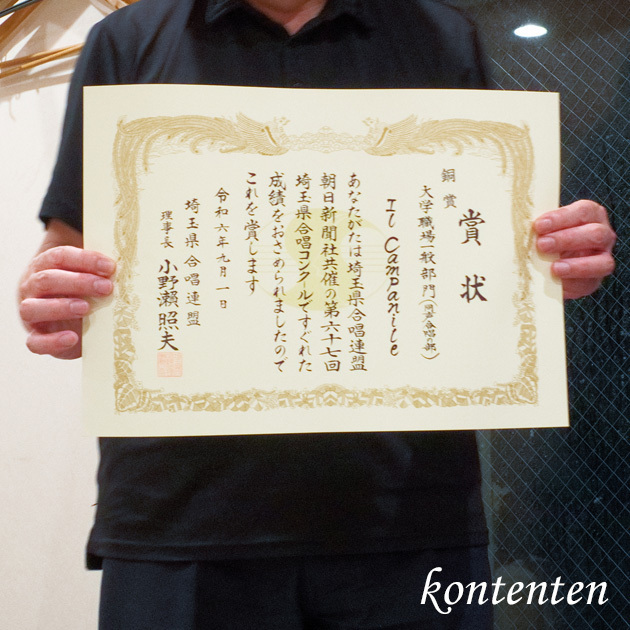 賞状
銅賞
大学職場一般部門(混声合唱の部)
Il Campanile
あなたがたは埼玉県合唱連盟
朝日新聞社共催の第六十七回
埼玉県合唱コンクールですぐれた
成績をおさめられましたので
これを賞します
令和六年九月一日
埼玉県合唱連盟
理事長 小野瀬照夫
kontenten